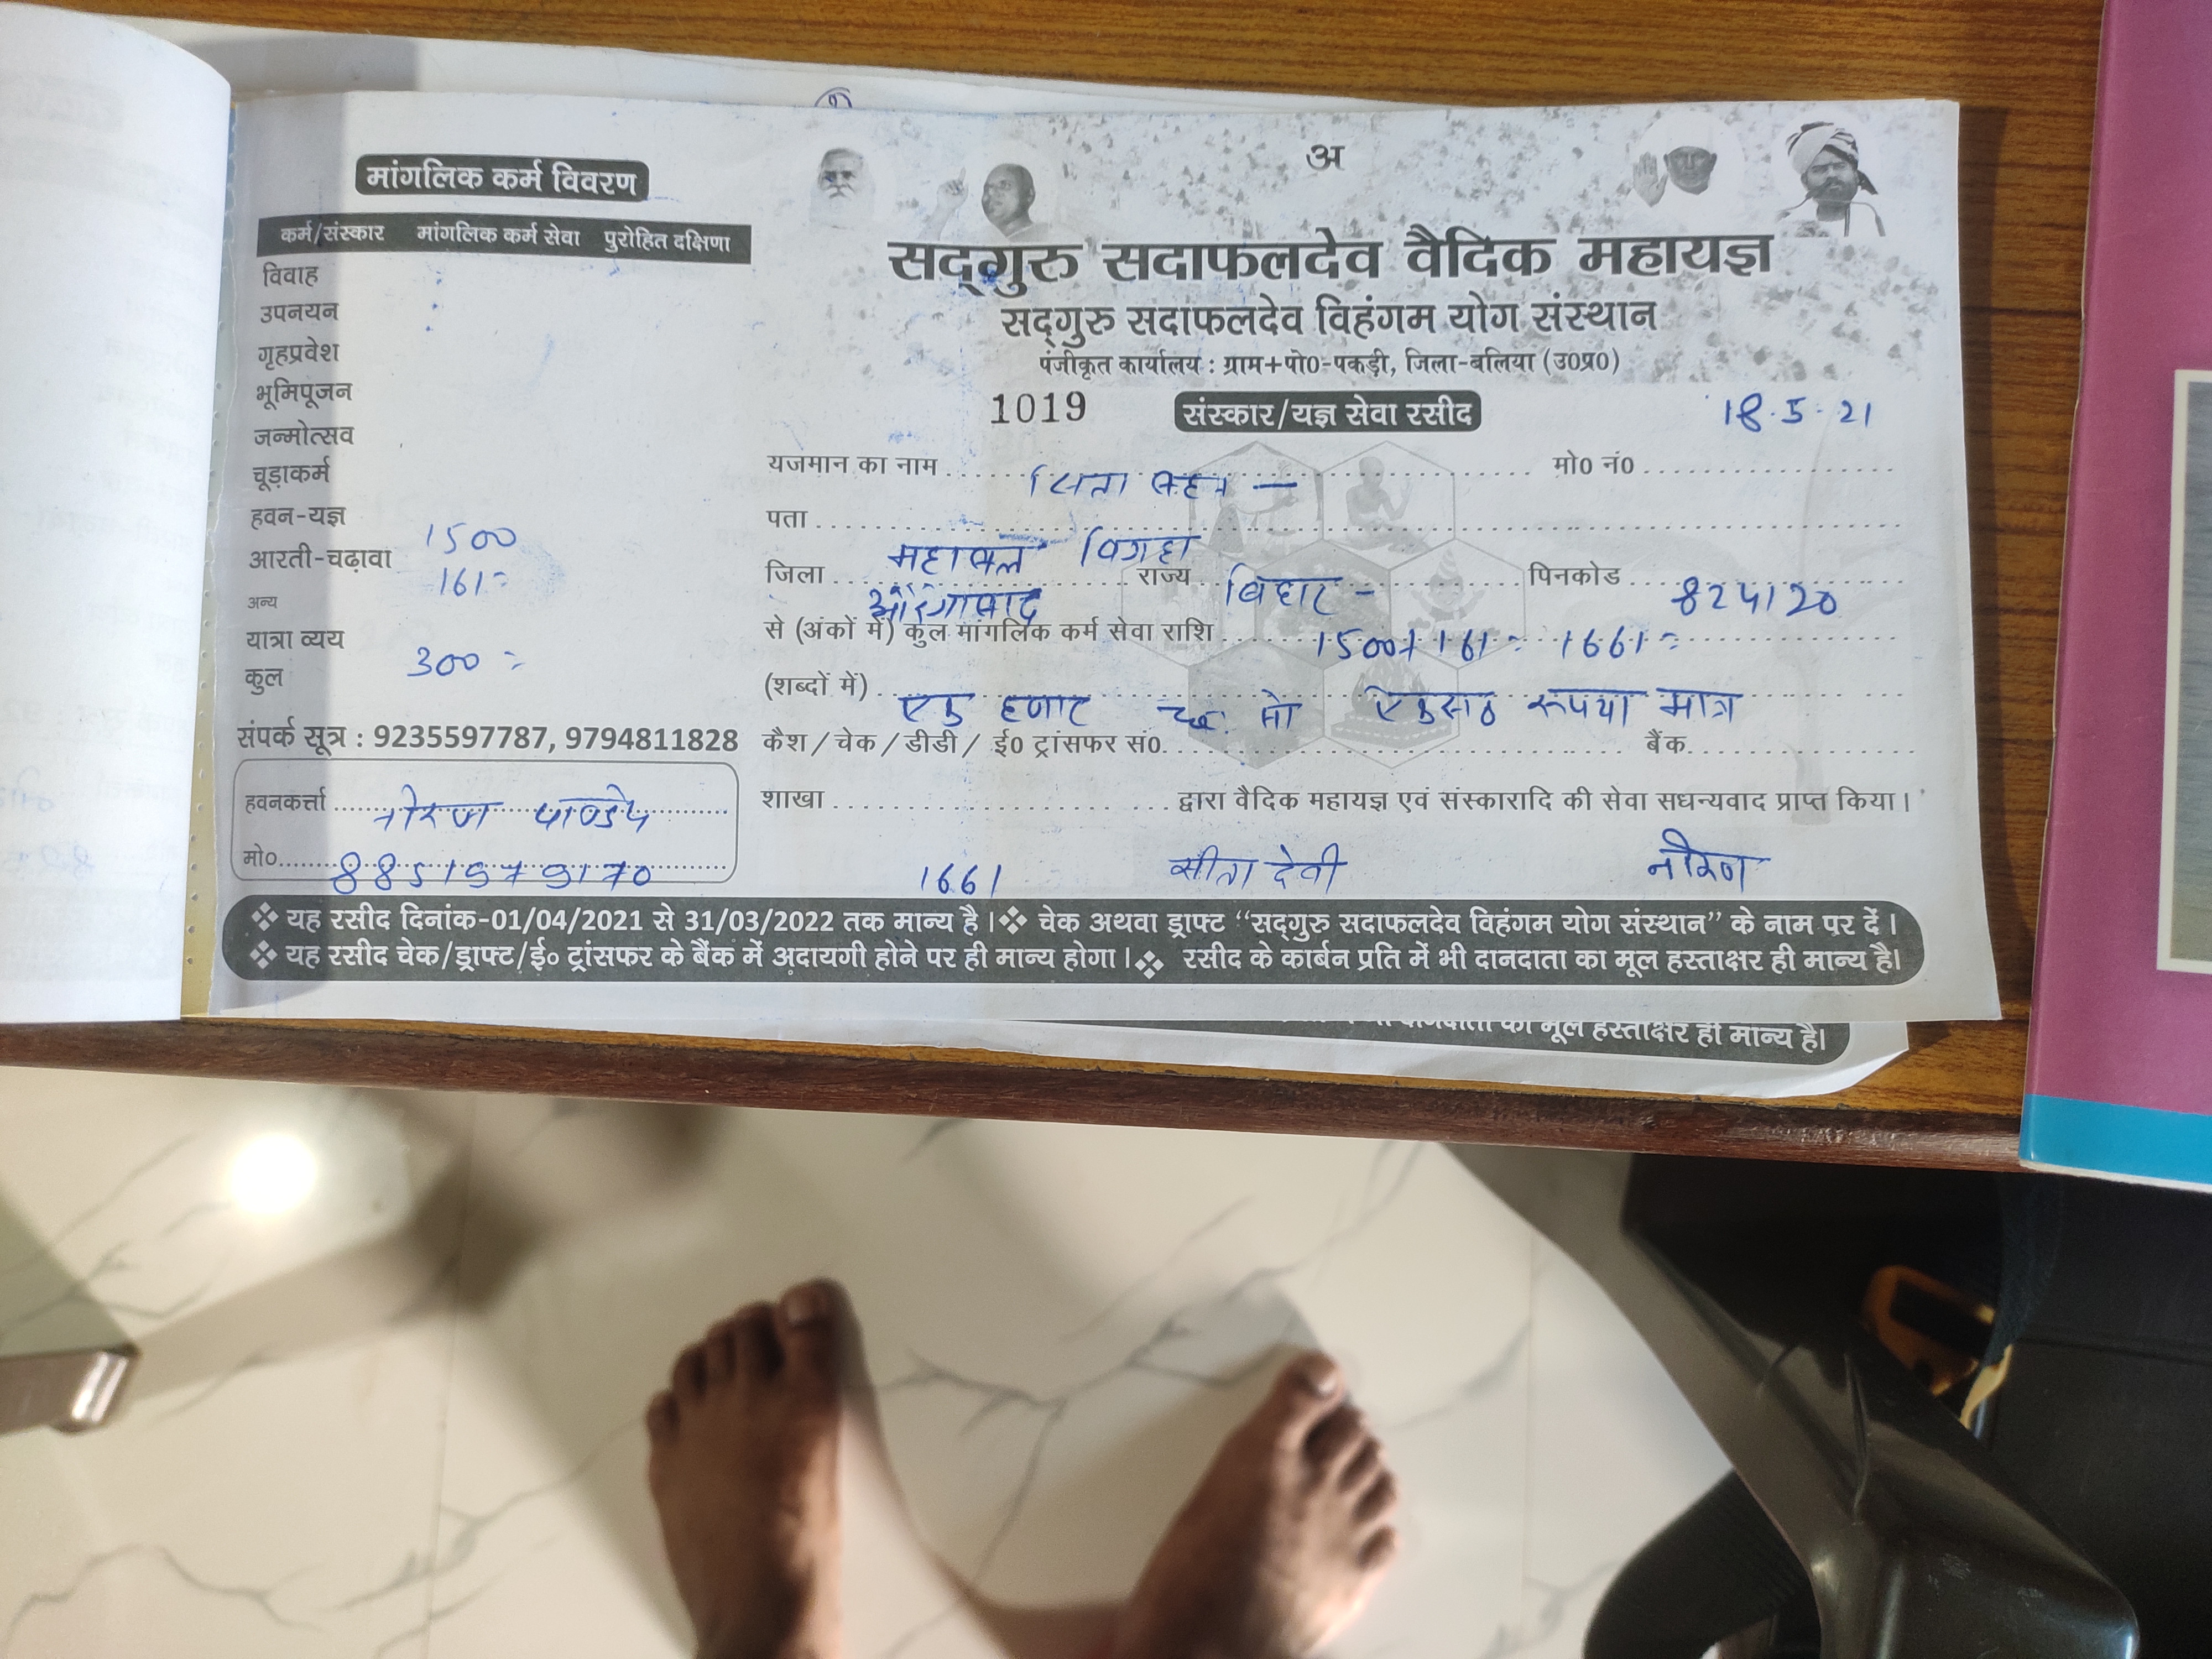 मांगलिक कर्म विवरण
कर्म/संस्कार मांगलिक कर्म सेवा पुरोहित दक्षिणा
विवाह
उपनयन
गृहप्रवेश
भूमिपूजन
जन्मोत्सव
चूड़ाकर्म
हवन-यज्ञ
1500
आरती-चढ़ावा
161=
अन्य
यात्रा व्यय
300=
कुल
संपर्क सूत्र : 9235597787, 9794811828
हवनकर्त्ता नीरज पाण्डेय
मो०
अ
सद्गुरु सदाफलदेव वैदिक महायज्ञ
सद्गुरु सदाफलदेव विहंगम योग संस्थान
पंजीकृत कार्यालय : ग्राम+पो0-पकड़ी, जिला-बलिया (उ0प्र0)
1019 संस्कार/यज्ञ सेवा रसीद 18.5.21
यजमान का नाम मो0 नं0
पता
जिला औरंगाबाद राज्य बिहार - पिनकोड 824120
से (अंकों में) कुल मांगलिक कर्म सेवा राशि 1500+161= 1661=
(शब्दों में) एक हजार छः सो एकसठ रूपया मात्र
कैश / चेक / डीडी / ई0 ट्रांसफर सं0. बैंक
शाखा द्वारा वैदिक महायज्ञ एवं संस्कारादि की सेवा सधन्यवाद प्राप्त किया।
1661 सीता देवी नीरज
❖ यह रसीद दिनांक-01/04/2021 से 31/03/2022 तक मान्य है। ❖ चेक अथवा ड्राफ्ट “सद्गुरु सदाफलदेव विहंगम योग संस्थान” के नाम पर दें।
❖ यह रसीद चेक/ड्राफ्ट/ई० ट्रांसफर के बैंक में अदायगी होने पर ही मान्य होगा। ❖ रसीद के कार्बन प्रति में भी दानदाता का मूल हस्ताक्षर ही मान्य है।
का मूल हस्ताक्षर ही मान्य है।